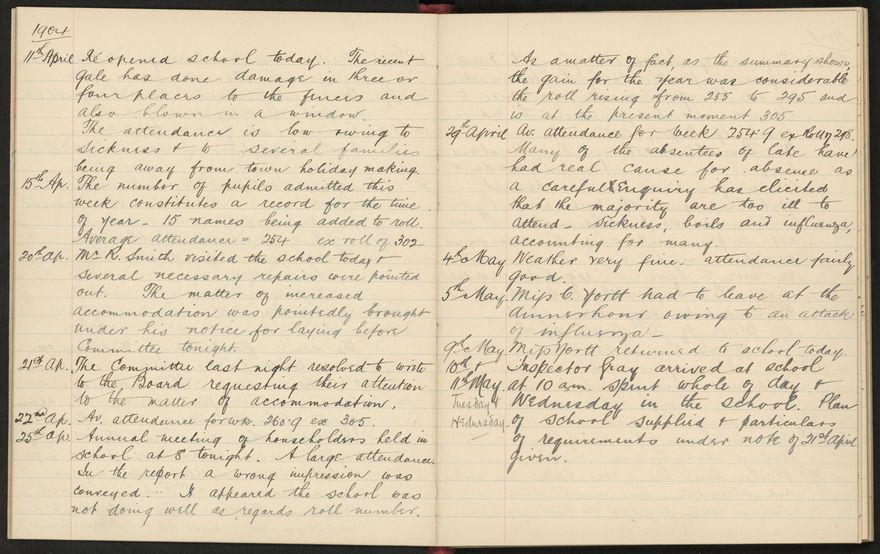 1904
11th April Re opened school today. The recent
gale has done damage in three or
four places to the fences and
also blown in a window.
The attendance is low owing to
sickness & to several families
being away from town holiday making.
15th Ap. The number of pupils admitted this
week constitutes a record for the time
of year - 15 names being added to roll.
Average attendance = 254 ex roll of 302
20th Ap. Mr R. Smith visited the school today &
several necessary repairs were pointed
out. The matter of increased
accommodation was pointedly brought
under his notice for laying before
Committee tonight.
21st Ap. The Committee last night resolved to write
to the Board requesting their attention
to the matter of accommodation.
22nd Ap. Av. attendance for wk. 260.9 ex 305.
25th Ap. Annual meeting of householders held in
school at 8 tonight. A large attendance.
In the report a wrong impression was
conveyed. It appeared the school was
not doing well as regards roll number.
As a matter of fact, as the summary shows,
the gain for the year was considerable
the roll rising from 255 to 295 and
is at the present moment 305.
29th April Av. attendance for week 254.9 ex Roll of
Many of the absentees of late have
had real cause for absence as
a careful enquiry has elicited
that the majority are too ill to
attend - Sickness, boils and influenza,
accounting for many.
4th May Weather very fine - attendance fairly
good.
5th May. Miss C. Yortt had to leave at the
dinner hour owing to an attack
of influenza -
9th May. Miss Yortt returned to school today.
10th & Inspector Gray arrived at school
11th May at 10 am. Spent whole of day &
Tuesday & Wednesday in the school. Plan
Wednesday of school supplied & particulars
of requirements under note of 21st April
given.